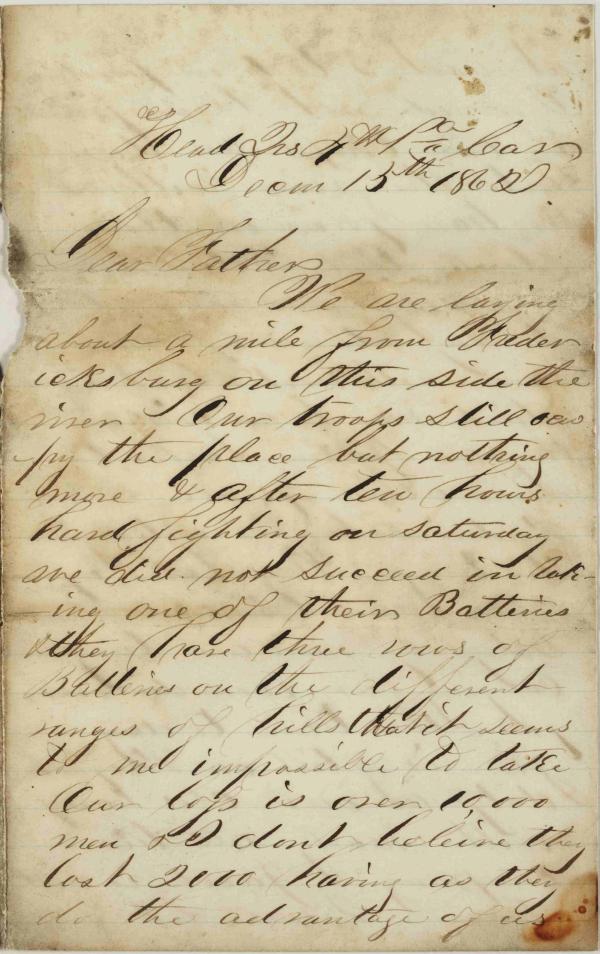 Head Qrs 4th Pa Cav
Decm 15th 1862
Dear Father
We are laying
about a mile from Freder
icksburg on this side the
river Our troops still ocu
py the place but nothing
more & after ten hours
hard fighting on saturday
we did not succeed in tak-
ing one of their Batteries
& they have three rows of
Batteries on the different
ranges of hills that it seems
to me impossible to take
Our loss is over 10,000
men & I dont beleive they
lost 2000 having as they
do the advantage of us